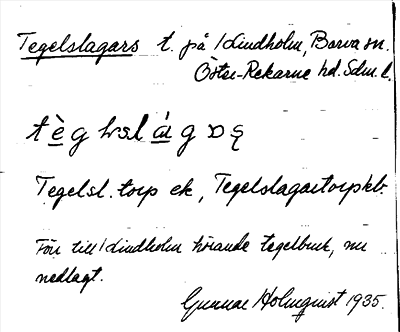 Tegelslagars t. på Lindholm, Barva sn.
Öster-Rekarne hd. Sdm. l.
Tegelsl. torp ek, Tegelslagartorp kb.
Förr till Lindholm hörande tegelbruk, nu
nedlagt.
Gunnar Holmquist 1935.